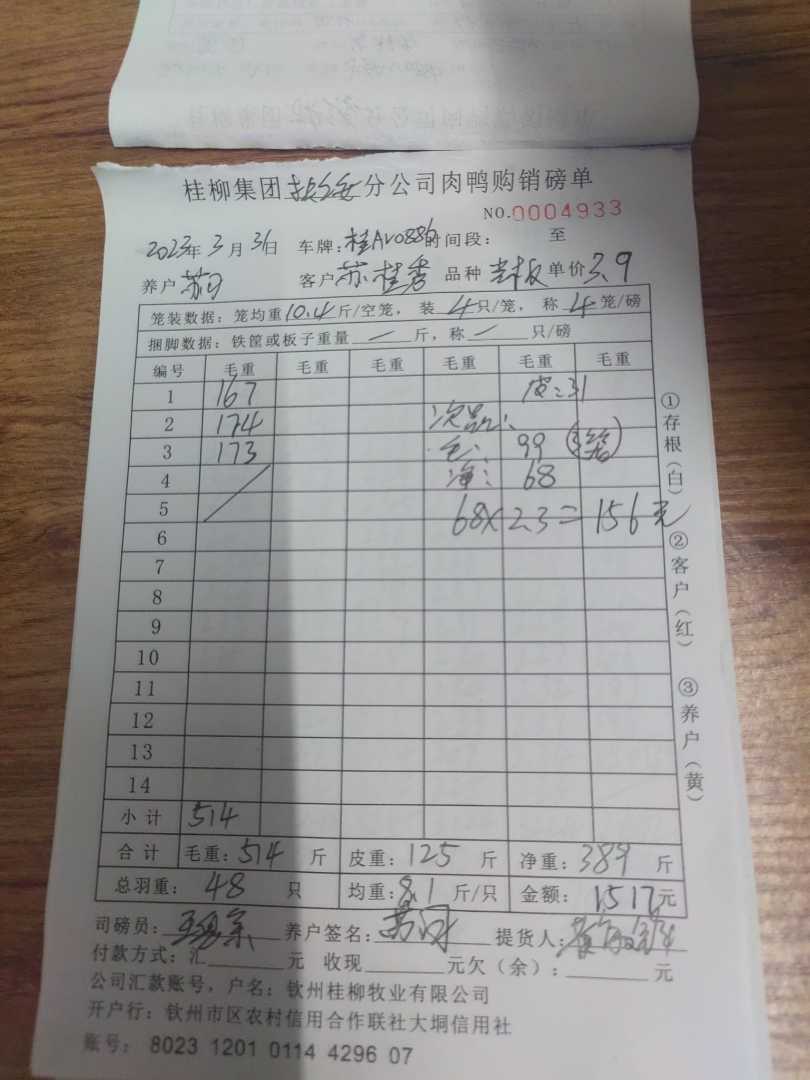 桂柳集团 分公司肉鸭购销磅单
NO.0004933
2023年3月31日 车牌:桂AV0886 时间段: 至
养户 苏 客户 苏桂秀 品种 单价 3.9
笼装数据:笼均重10.4斤/空笼, 装4只/笼, 称4笼/磅
捆脚数据:铁筐或板子重量 — 斤,称 — 只/磅
编号 毛重 毛重 毛重 毛重 毛重 毛重
1 167 皮:31
2 174 次品:
3 173 毛: 99 (3笼)
4 净: 68
5 68×2.3=156元
6
7
8
9
10
11
12
13
14
小计 514
合计 毛重:514 斤 皮重:125 斤 净重:389 斤
总羽重: 48 只 均重:8.1 斤/只 金额: 1517元
司磅员: 养户签名: 苏 提货人:
付款方式:汇 元 收现 元欠(余): 元
公司汇款账号,户名:钦州桂柳牧业有限公司
开户行:钦州市区农村信用合作联社大垌信用社
账号: 8023 1201 0114 4296 07
①存根(白) ②客户(红) ③养户(黄)